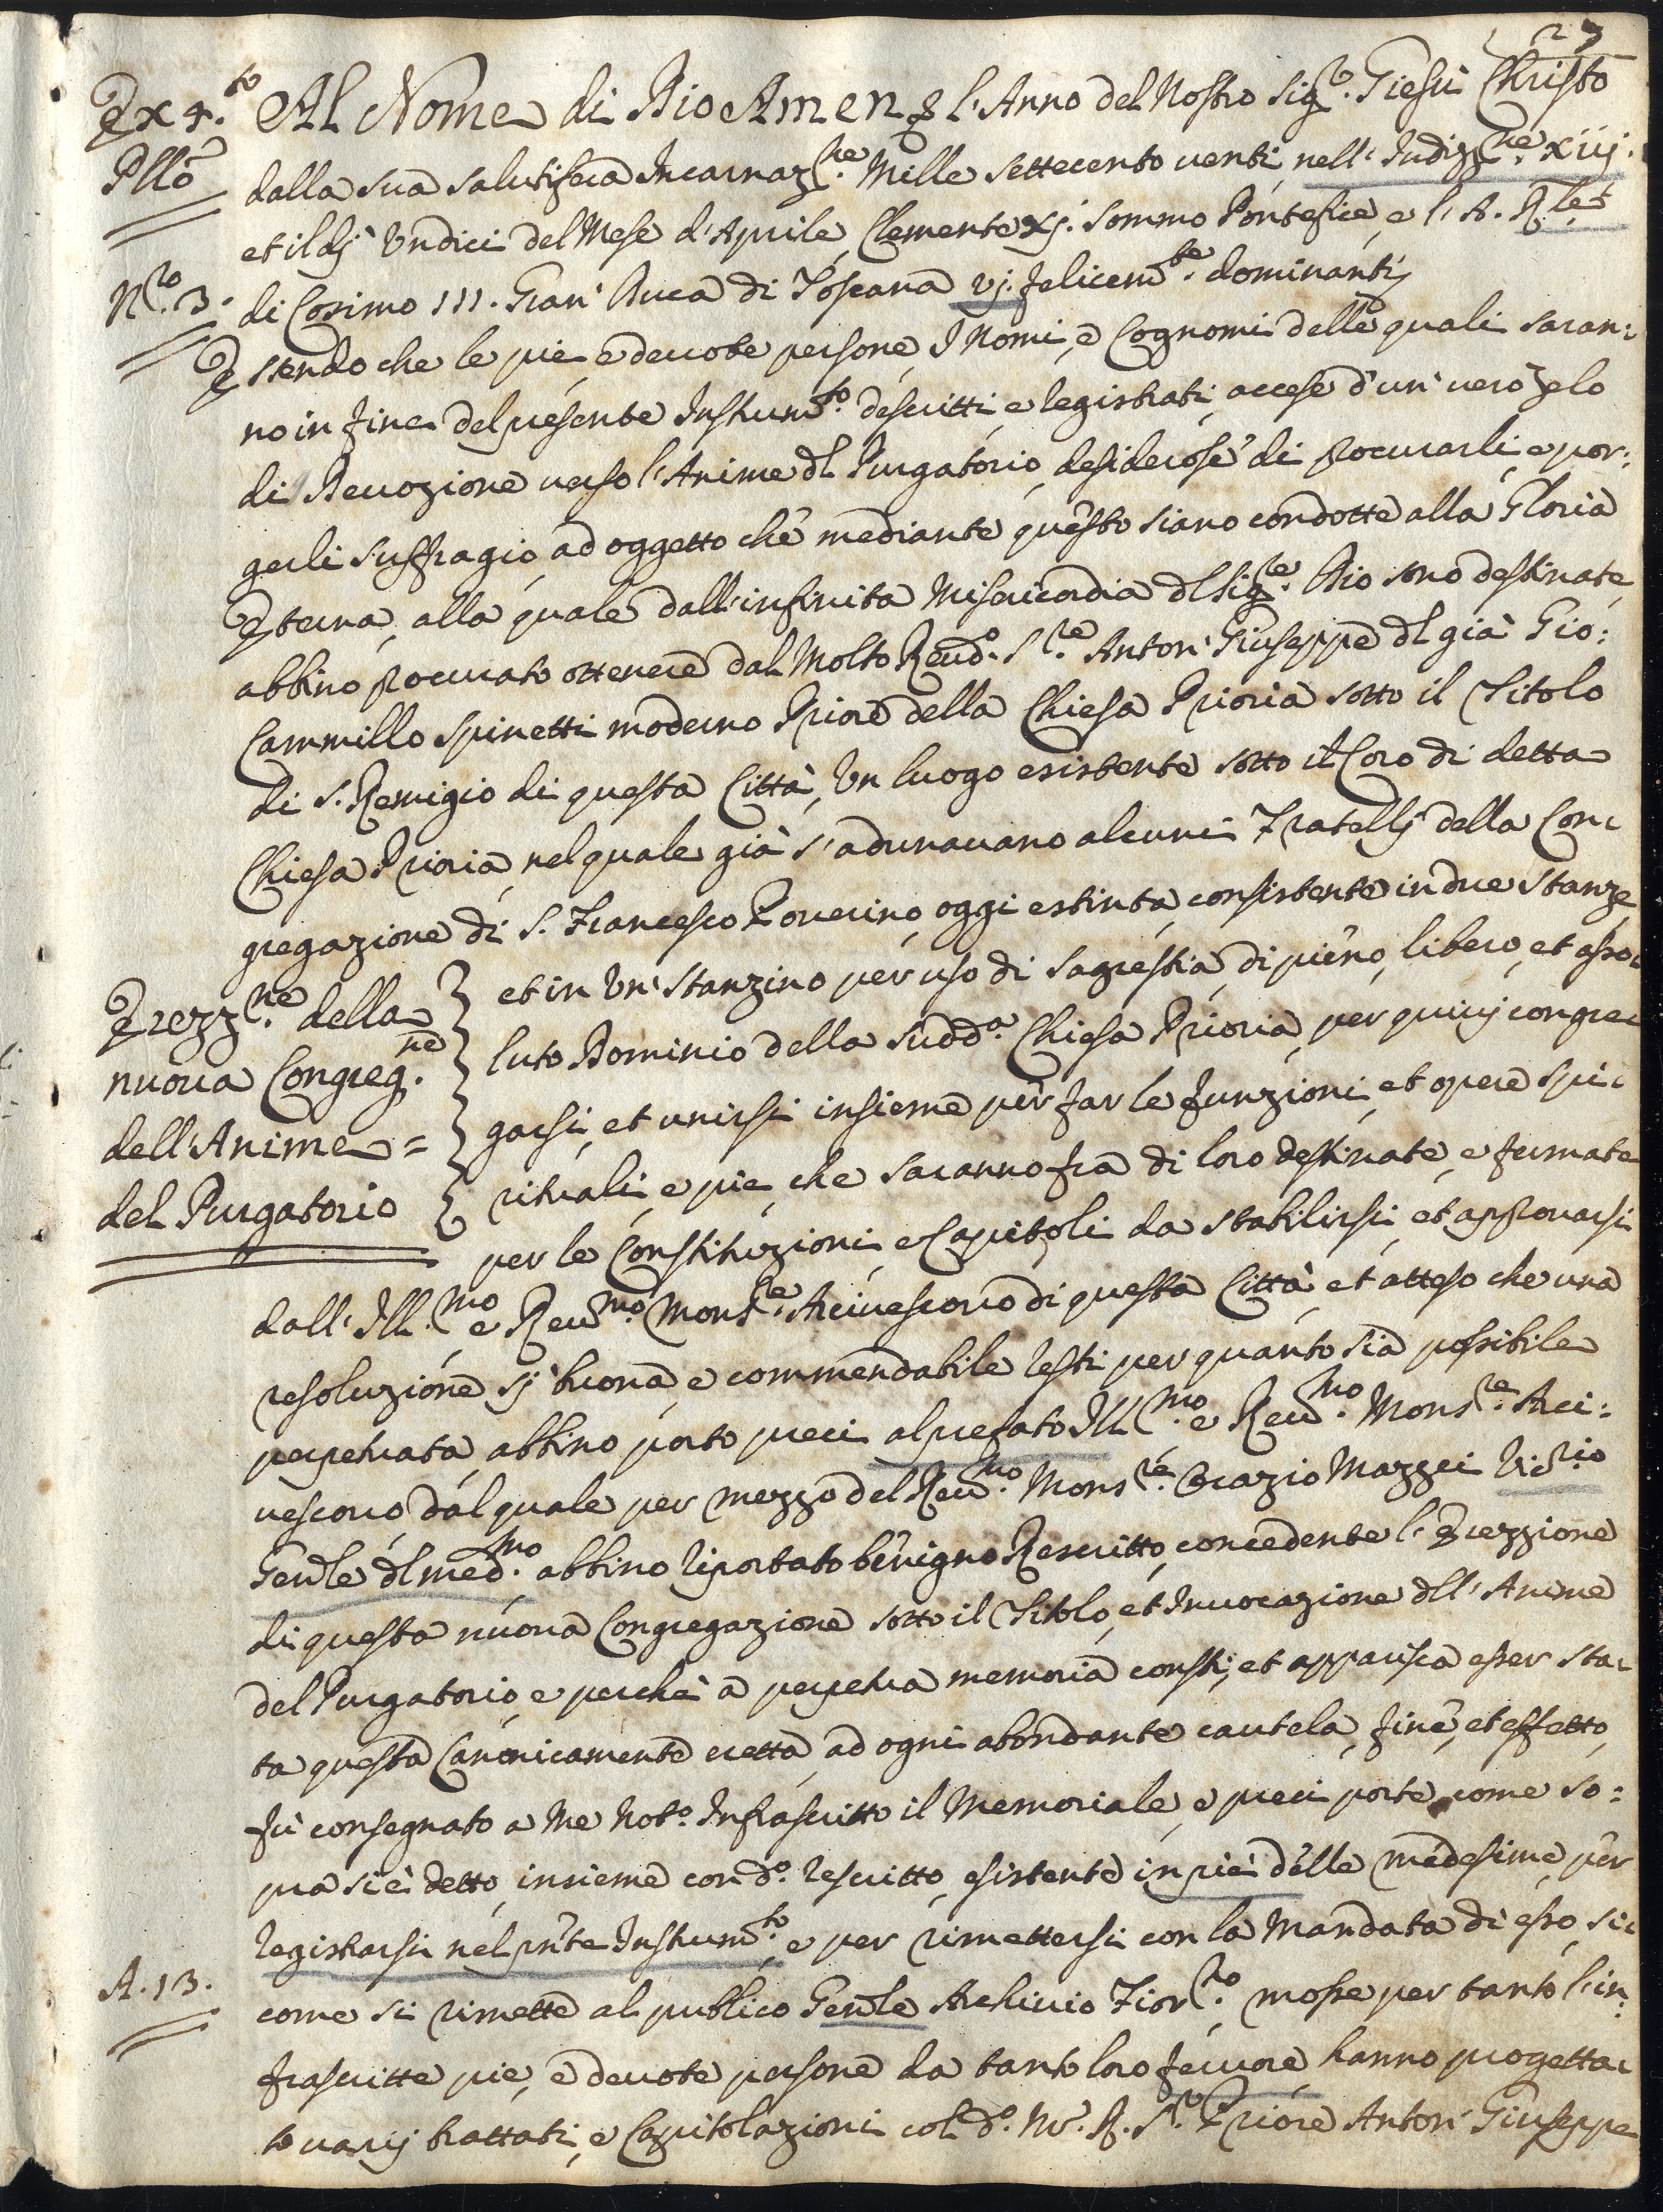 27
Ex 4.to Al Nome di Dio Amen p l'Anno del Nostro Sig.re Giesù Christo
Pllõ
dalla sua salutifera Incarnaz.ne Mille settecento venti nell'Indizz.ne xiij.
et il dj Undici del Mese d'Aprile, Clemente xj. Sommo Pontefice, e l'A. R.le
N.ro 3. di Cosimo III. Gran' Duca di Toscana vj. felicem.te dominantj
Essendo che le pie, e devote persone, I Nomi, e Cognomi delle quali saran:
no in fine del presente Instrum.to descritti, e registrati, accese d'un' vero zelo
di Devozione verso l'Anime dl Purgatorio, desiderose di procurarli, e por:
gerli suffragio, ad oggetto che mediante questo siano condotte alla Gloria
Eterna, alla quale dall'infinita Misericordia dl Sig.re Dio sono destinate,
abbino procurato ottenere dal Molto Reud.o S.re Anton' Giuseppe dl già Gio:
Cammillo Spinetti moderno Priore della Chiesa Prioria sotto il Titolo
di S. Remigio di questa Città, Un luogo esistente sotto il Coro di detta
Chiesa Prioria, nel quale già s'adunavano alcuni Fratellj della Con:
gregazione di S. Francesco Poverino, oggi estinta, consistente in due stanze,
et in Un' stanzino per uso di sagrestia, di pieno, libero, et asso:
Erezz.ne della
nuova Congreg.ne
dell'Anime =
del Purgatorio
luto Dominio della sudd.a Chiesa Prioria, per quivj congre:
garsi, et unirsi insieme per far le funzioni, et opere spi:
rituali, e pie, che saranno fra di loro destinate, e fermate
per le Constituzioni, e Capitoli da stabilirsi, et approvarsi
dall'Ill.mo e Reu.mo Mons.re Arcivescovo di questa Città, et atteso che una
resoluzione sj buona, e commendabile resti per quanto sia possibile
perpetuata, abbino porto preci al prefato Ill.mo e Reu.mo Mons.re Arci:
vescovo, dal quale per mezzo del Reu.mo Mons.re Orazio Mazzei Vic.rio
Genle dl med.mo abbino riportato benigno Rescritto, concedente l'Erezzione
di questa nuova Congregazione sotto il Titolo, et Invocazione dll'Anime
del Purgatorio, e perchè a perpetua memoria consti, et apparisca esser sta:
ta questa Canonicamente eretta, ad ogni abondante cautela, fine, et effetto,
fù consegnato a Me Not.o Infrascritto il Memoriale, e preci porte, come so:
pra si è detto, insieme con d.o rescritto, esistente in piè delle medesime, per
registrarsi nel pñte Instrum.to e per rimettersi con la Mandata di esso, si:
A. 13.
come si rimette al publico Genle Archivio Fior.no mosse per tanto l'in:
frascritte pie, e devote persone da tanto loro fervore, hanno progetta:
to varij trattati, e Capitolazioni col d.o M.o R. S.re Priore Anton' Giuseppe